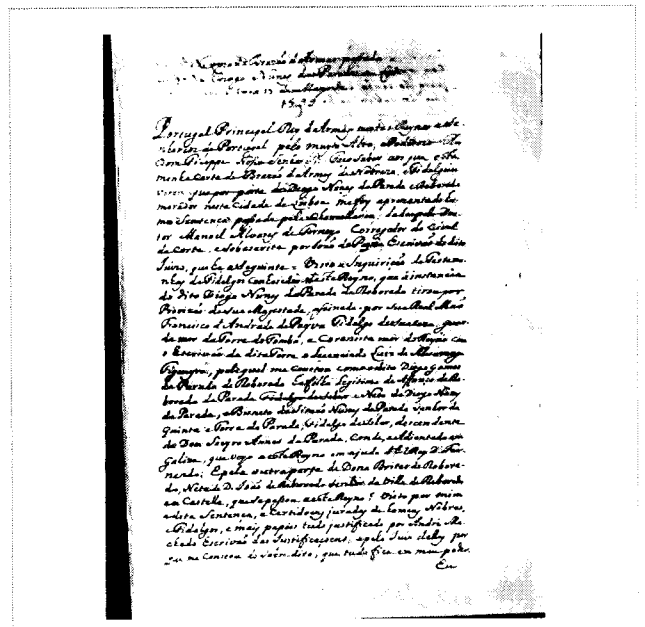 de Brazaõ de Armas passada a
Diogo Nunes da Parada
15
Portugal Principal Rey de Armas nestes Reynos e Se-
nhorios de Portugal pelo muito Alto, e Poderoso
Dom Felippe Nosso Senhor Faço saber aos que esta
minha Carta de Brazaõ de Armas de Nobreza, e Fidalguia
virem que por parte de Diogo Nunes da Parada e Reboredo
morador nesta Cidade de Lisboa me foy aprezentado hu-
ma Sentença passada pela Chancellaria, dada pelo Dou-
tor Manoel Alvares de Torneyo Corregedor do Civel
da Corte, e sobescrita por Escrivaõ do dito
Juizo, que he a seguinte = Visto a Inquiriçaõ de Testemu-
nhas de Fidalgos conhecidos deste Reyno, que á instancia
do dito Diogo Nunes da Parada de Reborado tirou por
Provizaõ de sua Magestade, asinada por sua Real Maõ
Francisco d'Andrada de Payva Fidalgo de sua Caza, guar-
da mor da Torre do Tombo, e Coronista mór do Reyno com
o Escrivaõ da dita Torre o Lecenciado Luis de
Figueyra, pela qual me constou como o dito Diogo Nunes
da Parada de Reborado he filho legitimo de Affonso de Re-
borado da Parada Fidalgo de solar e Neto de Diogo Nunes
da Parada, e Bisneto de Simaõ Nunes da Parada senhor da
Quinta e Torre da Parada, Fidalgo de solar, descendente
de Dom Soeyro Annes da Parada, Conde, e Adiantado em
Galiza, que veyo a este Reyno em ajuda d'ElRey D. Fer-
nando; E pela outra parte de Dona Brites de Robore-
do, Neta de D. Joaõ de Reborado senhor da Villa de Reboredo
em Castella, que se passou a este Reyno: Visto por mim
a dita Sentença, e Certidoens juradas de homens Nobres,
e Fidalgos, e mais papeis tudo justificado por André Ma-
chado Escrivaõ das Justificaçoens, e pelo Juis dellas por
que me constou do saõ dito, que tudo fica em meu poder.
Eu